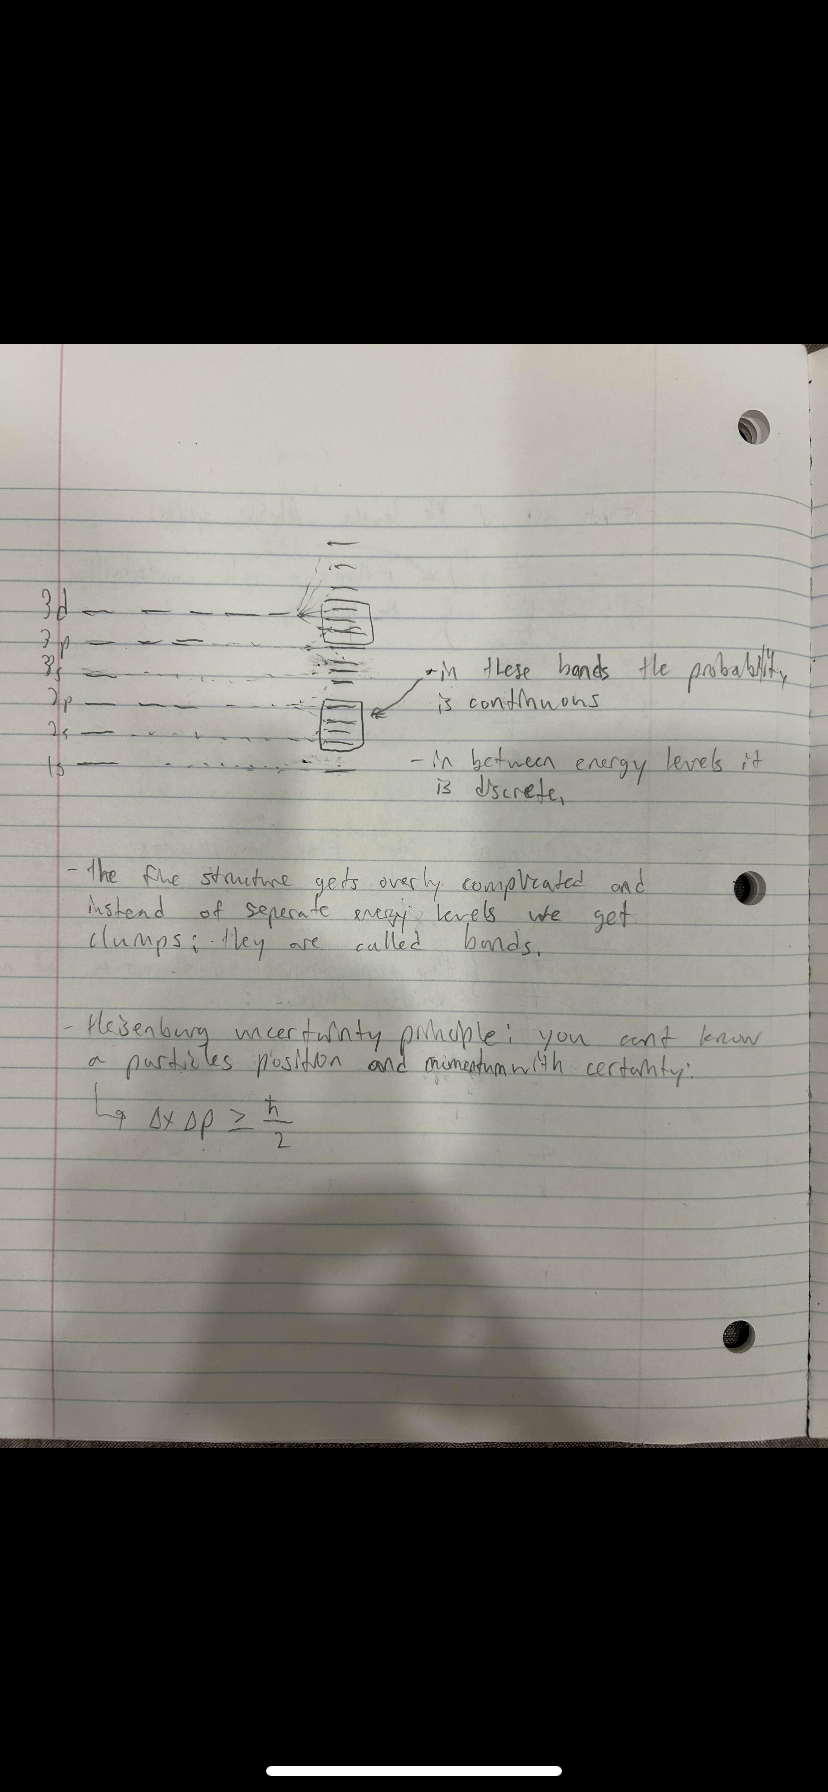 3d
3p
3s
2p
2s
1s
- in these bands the probability
is continuous
- in between energy levels it
is discrete.
- the fine structure gets overly complicated and
instead of seperate energy levels we get
clumps; they are called bands.
- Heisenburg uncertainty principle: you cant know
a particles position and momentum with certainty.
Δx Δp ≥ ħ/2